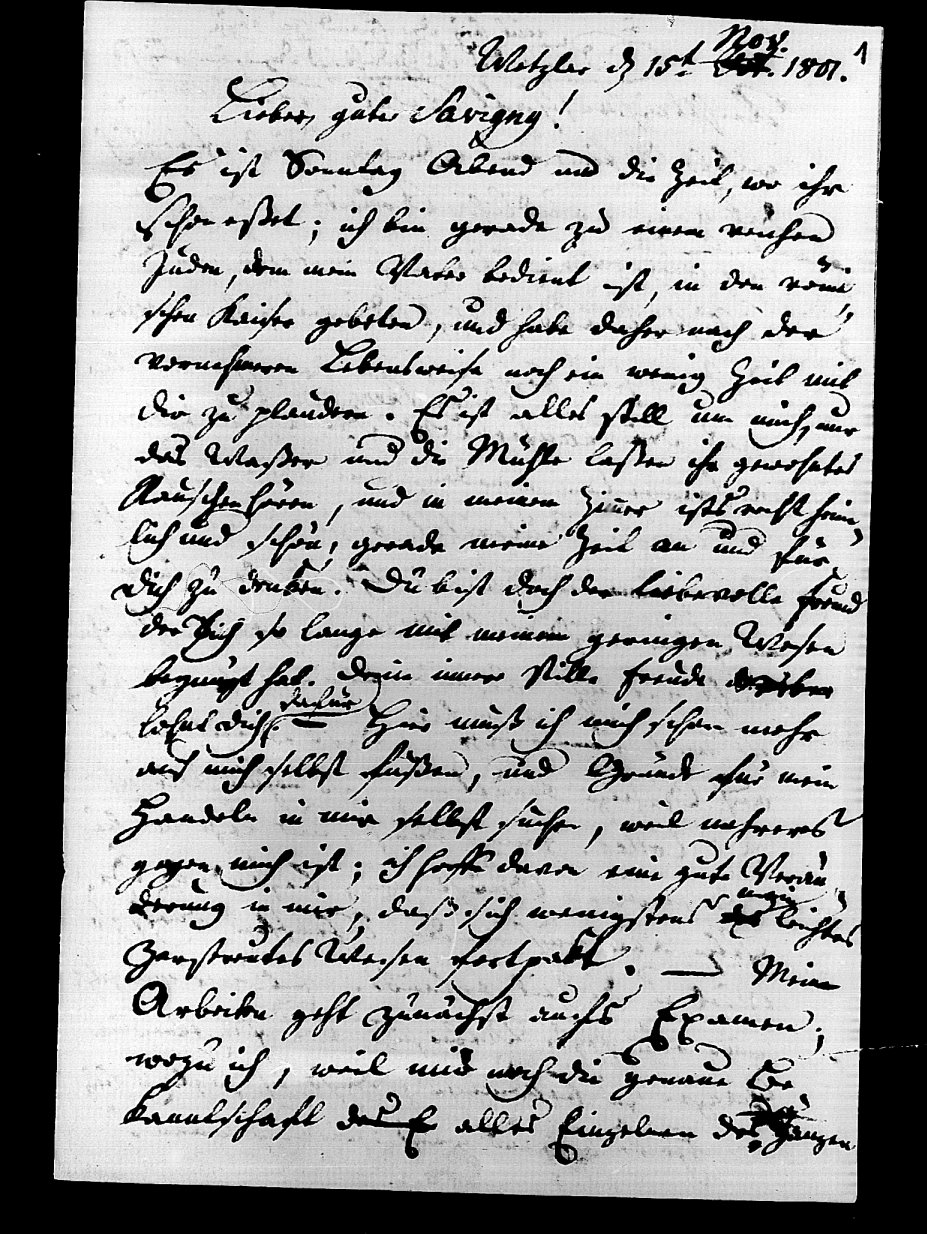 Wetzlar d 15t Nov. 1801. 1
Lieber, guter Savigny!
Es ist Sonntag Abend und die Zeit, wo ihr
schon eßet; ich bin gerade zu einem reichen
Juden, dem mein Vater bedient ist, in den römi
schen Kaiser gebeten, und habe daher nach der
vornehmeren Lebensweise noch ein wenig Zeit mit
dir zu plaudern. Es ist alles still um mich, nur
das Waßer und die Mühle laßen ihr gewohntes
Rauschen hören, und in meinem Zimer ists recht heim
lich und schön, gerade meine Zeit an und für
Dich zu denken. Du bist doch der liebevolle Freund
der Sich so lange mit meinem geringen Wesen
begnügt hat. Deine innere stille Freude
lohnt dich dafür. Hier muß ich mich schon mehr
auf mich selbst fußen, und Gründe für mein
Handeln in mir selbst suchen, weil mehreres
gegen mich ist; ich hoffe davon eine gute Verän
derung in mir, daß sich wenigstens mein leichtes
zerstreutes Wesen fortpakt. — Meine
Arbeiten geht zunächst aufs Examen;
wozu ich, weil mir noch die genaue Be
kanntschaft des E alles Einzelnen des Ganzen